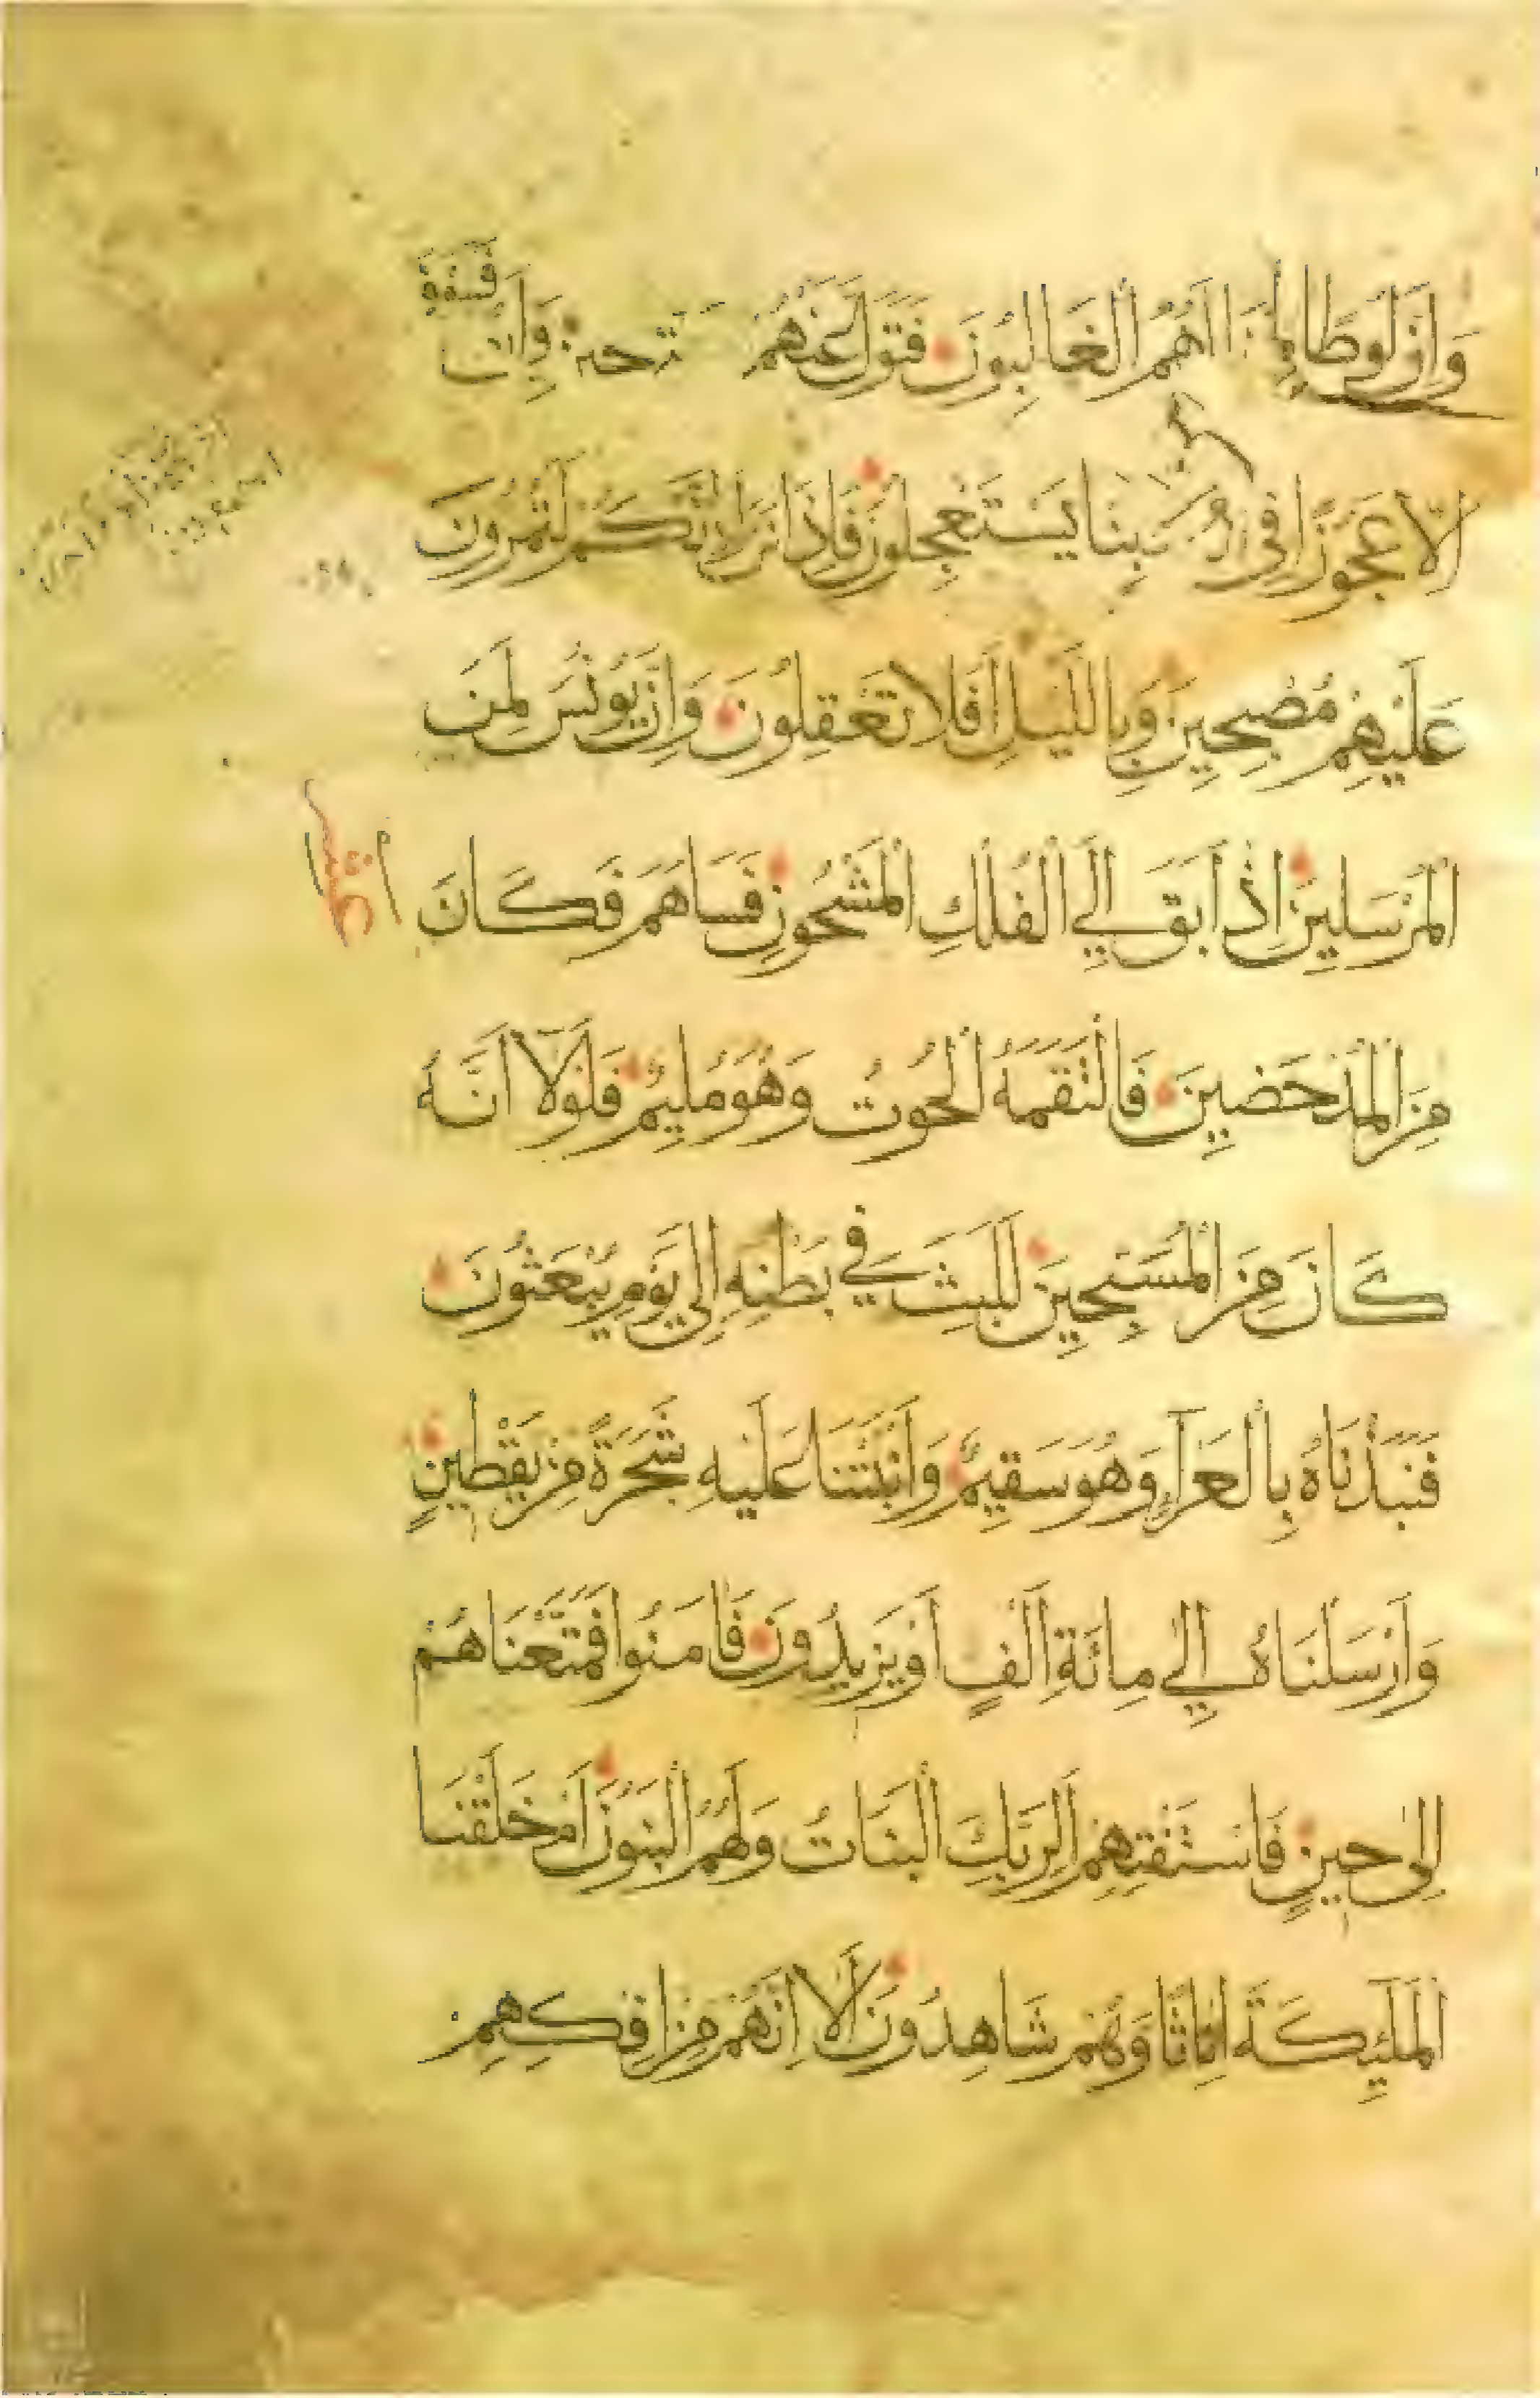 وَاِنَّ لُوطًا لَمِنَ الهُمُ الْغَالِبُونَ فَتَوَلَّ عَنْهُمْ وَاِنَّ
اِلَّا عَجُوزًا فِي بِنَا يَسْتَعْجِلُونَ فَاِذَا نَزَلَ وَاِنَّكُمْ لَتَمُرُّونَ
عَلَيْهِمْ مُصْبِحِينَ وَبِاللَّيْلِ اَفَلَا تَعْقِلُونَ وَاِنَّ يُونُسَ لَمِنَ
الْمُرْسَلِينَ اِذْ اَبَقَ اِلَي الْفُلْكِ الْمَشْحُونِ فَسَاهَمَ فَكَانَ
عشر
مِنَ الْمُدْحَضِينَ فَالْتَقَمَهُ الْحُوتُ وَهُوَ مُلِيمٌ فَلَوْلَا اَنَّهُ
كَانَ مِنَ الْمُسَبِّحِينَ لَلَبِثَ فِي بَطْنِهِ اِلَي يَوْمِ يُبْعَثُونَ
فَنَبَذْنَاهُ بِالْعَرَآءِ وَهُوَ سَقِيمٌ وَاَنْبَتْنَا عَلَيْهِ شَجَرَةً مِنْ يَقْطِينٍ
وَاَرْسَلْنَاهُ اِلَي مِائَةِ اَلْفٍ اَوْ يَزِيدُونَ فَامَنُوا فَمَتَّعْنَاهُمْ
اِلَى حِينٍ فَاسْتَفْتِهِمْ اَلِرَبِّكَ الْبَنَاتُ وَلَهُمُ الْبَنُونَ اَمْ خَلَقْنَا
الْمَلَئِكَةَ اِنَاثًا وَهُمْ شَاهِدُونَ اَلَا اِنَّهُمْ مِنْ اِفْكِهِمْ